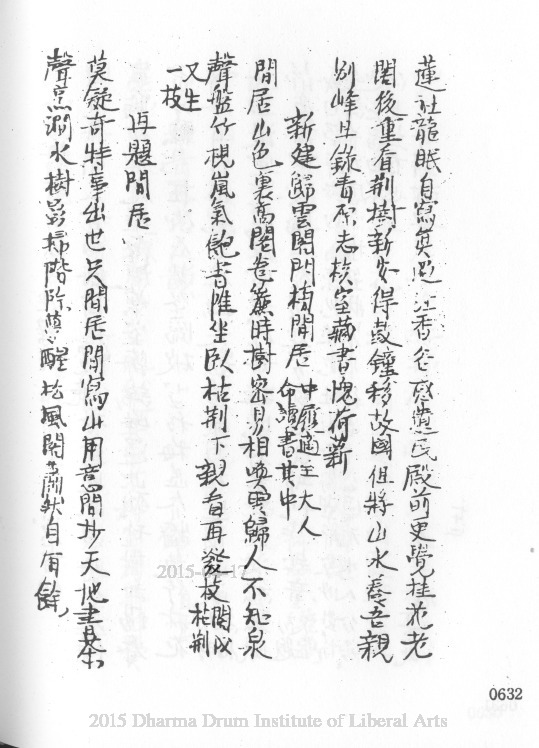 蓮社龍眠自寫真過江香谷感遺民殿前更覺桂花老
閣後重看荆樹新安得鼓鐘移故國但將山水爲吾親
別峰且錄青原志核室藏書愧荷薪
新建歸雲閣閂楠閒居
中履適至大人
命讀書其中
閒居山色裏高閣卷簾時樹密易相喚雲歸人不知泉
聲盤竹梘嵐氣飽書帷坐臥枯荆下親看再發枝
閣以枯荆
又生
一枝
再題閒居
莫疑奇特事出世只閒居閣寫山用意間抄天地書茶
聲烹澗水樹影掃階除夢醒松風閣蕭然自有餘
0632
2015 Dharma Drum Institute of Liberal Arts